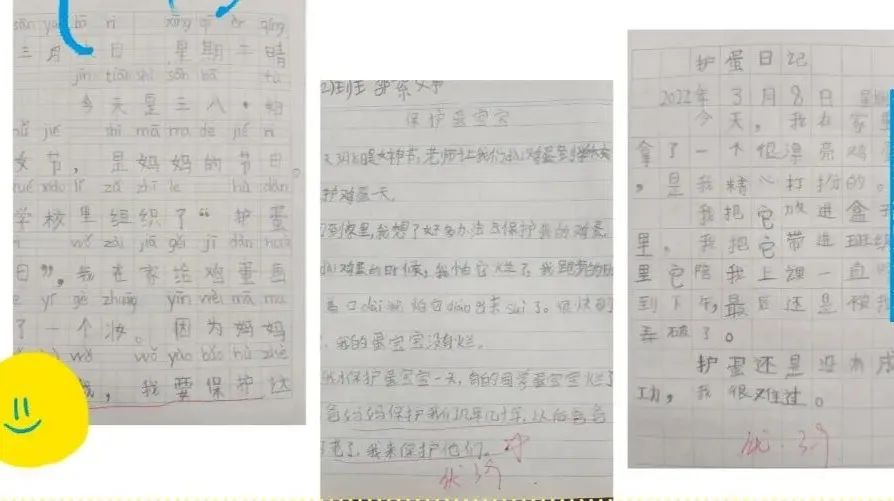 sān yuè bā rì xīng qī èr qíng
三月八日 早期二晴
jīn tiān shì sān bā fù
今天是三八·妇
nǚ jié shì mā ma de jié rì
女节，是妈妈的节日。
xué xiào lǐ zǔ zhī le hù dàn
学校里组织了“护蛋
rì wǒ zài jiā gěi jī dàn huà
日”，我在家给鸡蛋画
le yí gè zhuāng yīn wèi mā ma
了一个妆。因为妈妈
wǒ wǒ yào bǎo hù zhè
我，我要保护这
保护蛋宝宝
护鸡蛋一天。
到家里，我想了好多办法去保护我的鸡蛋，
鸡蛋的时候，我怕它烂了，我跑步的时
着口dai就怕它diào出来suì了。很快到
，我的蛋宝宝没有烂。
保护蛋宝宝一天，有的同学蛋宝宝烂了
爸爸妈妈保护我们几年几十年，以后爸爸
老了，我来保护他们。
优 3个
护蛋日记
2022年3月8日 星期
今天，我在家里
拿了一个很漂亮鸡蛋
，是我精心打扮的。
我把它放进盒子
里。我把它带进班级
里它陪我上课一直
到下午，最后还是被我
弄破了。
护蛋还是没有成
功，我很难过。
优 3个